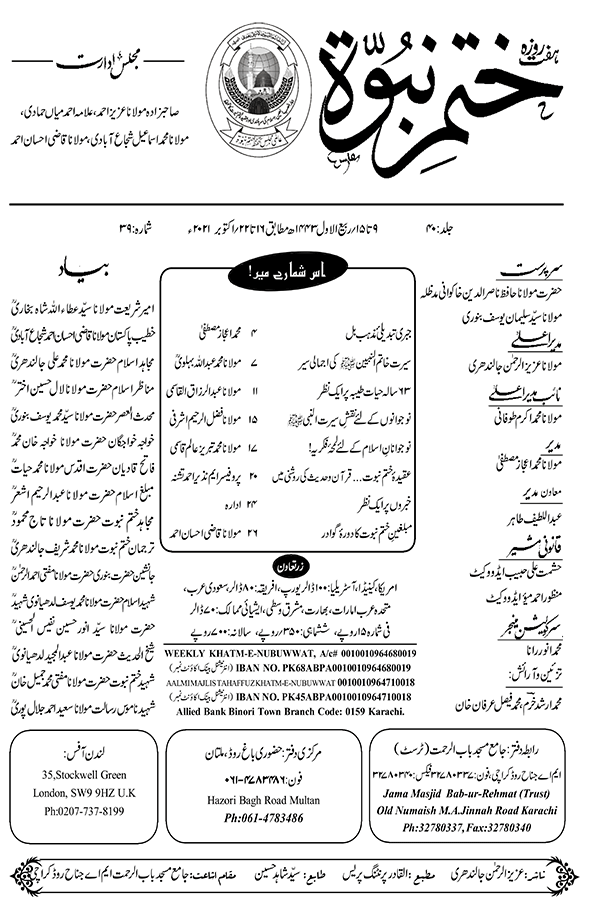 ہفت روزہ
ختم نبوۃ
مجلس ادارت
صاحبزادہ مولانا عزیز احمد، علامہ احمد میاں حمادی،
مولانا محمد اسماعیل شجاع آبادی، مولانا قاضی احسان احمد
جلد: ۴۰
۹ تا ۱۵؍ ربیع الاول ۱۴۴۳ھ مطابق ۱۶ تا ۲۲؍ اکتوبر ۲۰۲۱ء
شمارہ: ۳۹
سرپرست
حضرت مولانا حافظ ناصر الدین خاکوانی مدظلہ
مولانا سید سلیمان یوسف بنوری
مدیر اعلیٰ
مولانا عزیز الرحمٰن جالندھری
نائب مدیر اعلیٰ
مولانا محمد اکرم طوفانی
مدیر
مولانا محمد اعجاز مصطفیٰ
معاون مدیر
عبداللطیف طاہر
قانونی مشیر
حشمت علی حبیب ایڈووکیٹ
منظور احمد میؤ ایڈووکیٹ
سرکولیشن منیجر
محمد انور رانا
تزئین و آرائش:
محمد ارشد خرم، محمد فیصل عرفان خان
اس شمارے میں!
جبری تبدیلی مذہب بل ۴ محمد اعجاز مصطفیٰ
سیرت خاتم النبیین ﷺ کی اجمالی سیر ۷ مولانا محمد عبداللہ بہلویؒ
۶۳ سالہ حیات طیبہ پر ایک نظر ۱۱ مولانا عبدالرزاق القاسمی
نوجوانوں کے لئے نقش سیرت النبی ﷺ ۱۵ مولانا فضل الرحیم اشرفی
نوجوانان اسلام کے لئے لمحۂ فکریہ! ۱۷ مولانا محمد تبریز عالم قاسمی
عقیدۂ ختم نبوت... قرآن و حدیث کی روشنی میں ۲۰ پروفیسر ایم نذیر احمد تشنہ
خبروں پر ایک نظر ۲۴ ادارہ
مبلغین ختم نبوت کا دورۂ گوادر ۲۶ مولانا قاضی احسان احمد
زرتعاون
امریکا، کینیڈا، آسٹریلیا: ۱۰۰ ڈالر یورپ، افریقہ: ۸۰ ڈالر، سعودی عرب،
متحدہ عرب امارات، بھارت، مشرق وسطیٰ، ایشیائی ممالک: ۷۰ ڈالر
فی شمارہ ۱۵ روپے، ششماہی: ۳۵۰ روپے، سالانہ: ۷۰۰ روپے
WEEKLY KHATM-E-NUBUWWAT, A/c# 0010010964680019
IBAN NO. PK68ABPA0010010964680019 (انٹرنیشنل بینک اکاؤنٹ نمبر)
AALMIMAJLISTAHAFFUZKHATM-E-NUBUWWAT 0010010964710018
IBAN NO. PK45ABPA0010010964710018 (انٹرنیشنل بینک اکاؤنٹ نمبر)
Allied Bank Binori Town Branch Code: 0159 Karachi.
بیاد
امیر شریعت مولانا سید عطاء اللہ شاہ بخاریؒ
خطیب پاکستان مولانا قاضی احسان احمد شجاع آبادیؒ
مجاہد اسلام حضرت مولانا محمد علی جالندھریؒ
مناظر اسلام حضرت مولانا لال حسین اخترؒ
محدث العصر حضرت مولانا سید محمد یوسف بنوریؒ
خواجۂ خواجگان حضرت مولانا خواجہ خان محمدؒ
فاتح قادیان حضرت اقدس مولانا محمد حیاتؒ
مبلغ اسلام حضرت مولانا عبدالرحیم اشعرؒ
مجاہد ختم نبوت حضرت مولانا تاج محمودؒ
ترجمان ختم نبوت مولانا محمد شریف جالندھریؒ
جانشین حضرت بنوری حضرت مولانا مفتی احمد الرحمٰنؒ
شہید اسلام حضرت مولانا محمد یوسف لدھیانوی شہیدؒ
حضرت مولانا سید انور حسین نفیس الحسینیؒ
شیخ الحدیث حضرت مولانا عبدالمجید لدھیانویؒ
شہید ختم نبوت حضرت مولانا مفتی محمد جمیل خانؒ
شہید ناموس رسالت مولانا سعید احمد جلال پوریؒ
رابطہ دفتر: جامع مسجد باب الرحمت (ٹرسٹ)
ایم اے جناح روڈ کراچی، فون: ۳۲۷۸۰۳۳۷ فیکس: ۳۲۷۸۰۳۴۰
Jama Masjid Bab-ur-Rehmat (Trust)
Old Numaish M.A.Jinnah Road Karachi
Ph:32780337, Fax:32780340
مرکزی دفتر: حضوری باغ روڈ، ملتان
فون: ۰۶۱-۴۷۸۳۴۸۶
Hazori Bagh Road Multan
Ph:061-4783486
لندن آفس:
35,Stockwell Green
London, SW9 9HZ U.K
Ph:0207-737-8199
ناشر: عزیز الرحمٰن جالندھری مطبع: القادر پرنٹنگ پریس طابع: سید شاہد حسین مقام اشاعت: جامع مسجد باب الرحمت ایم اے جناح روڈ کراچی